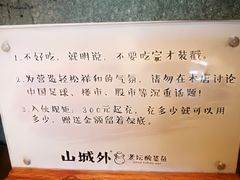 1、不好吃，就明说，不要吃完才装戳。
2、为营造轻松祥和的气氛，请勿在本店讨论
中国足球、楼市、股市等沉重话题！
3、入伙规矩：300元起充，充多少就可以用
多少，赠送金额留着做底。
山城外 老坛酸菜鱼